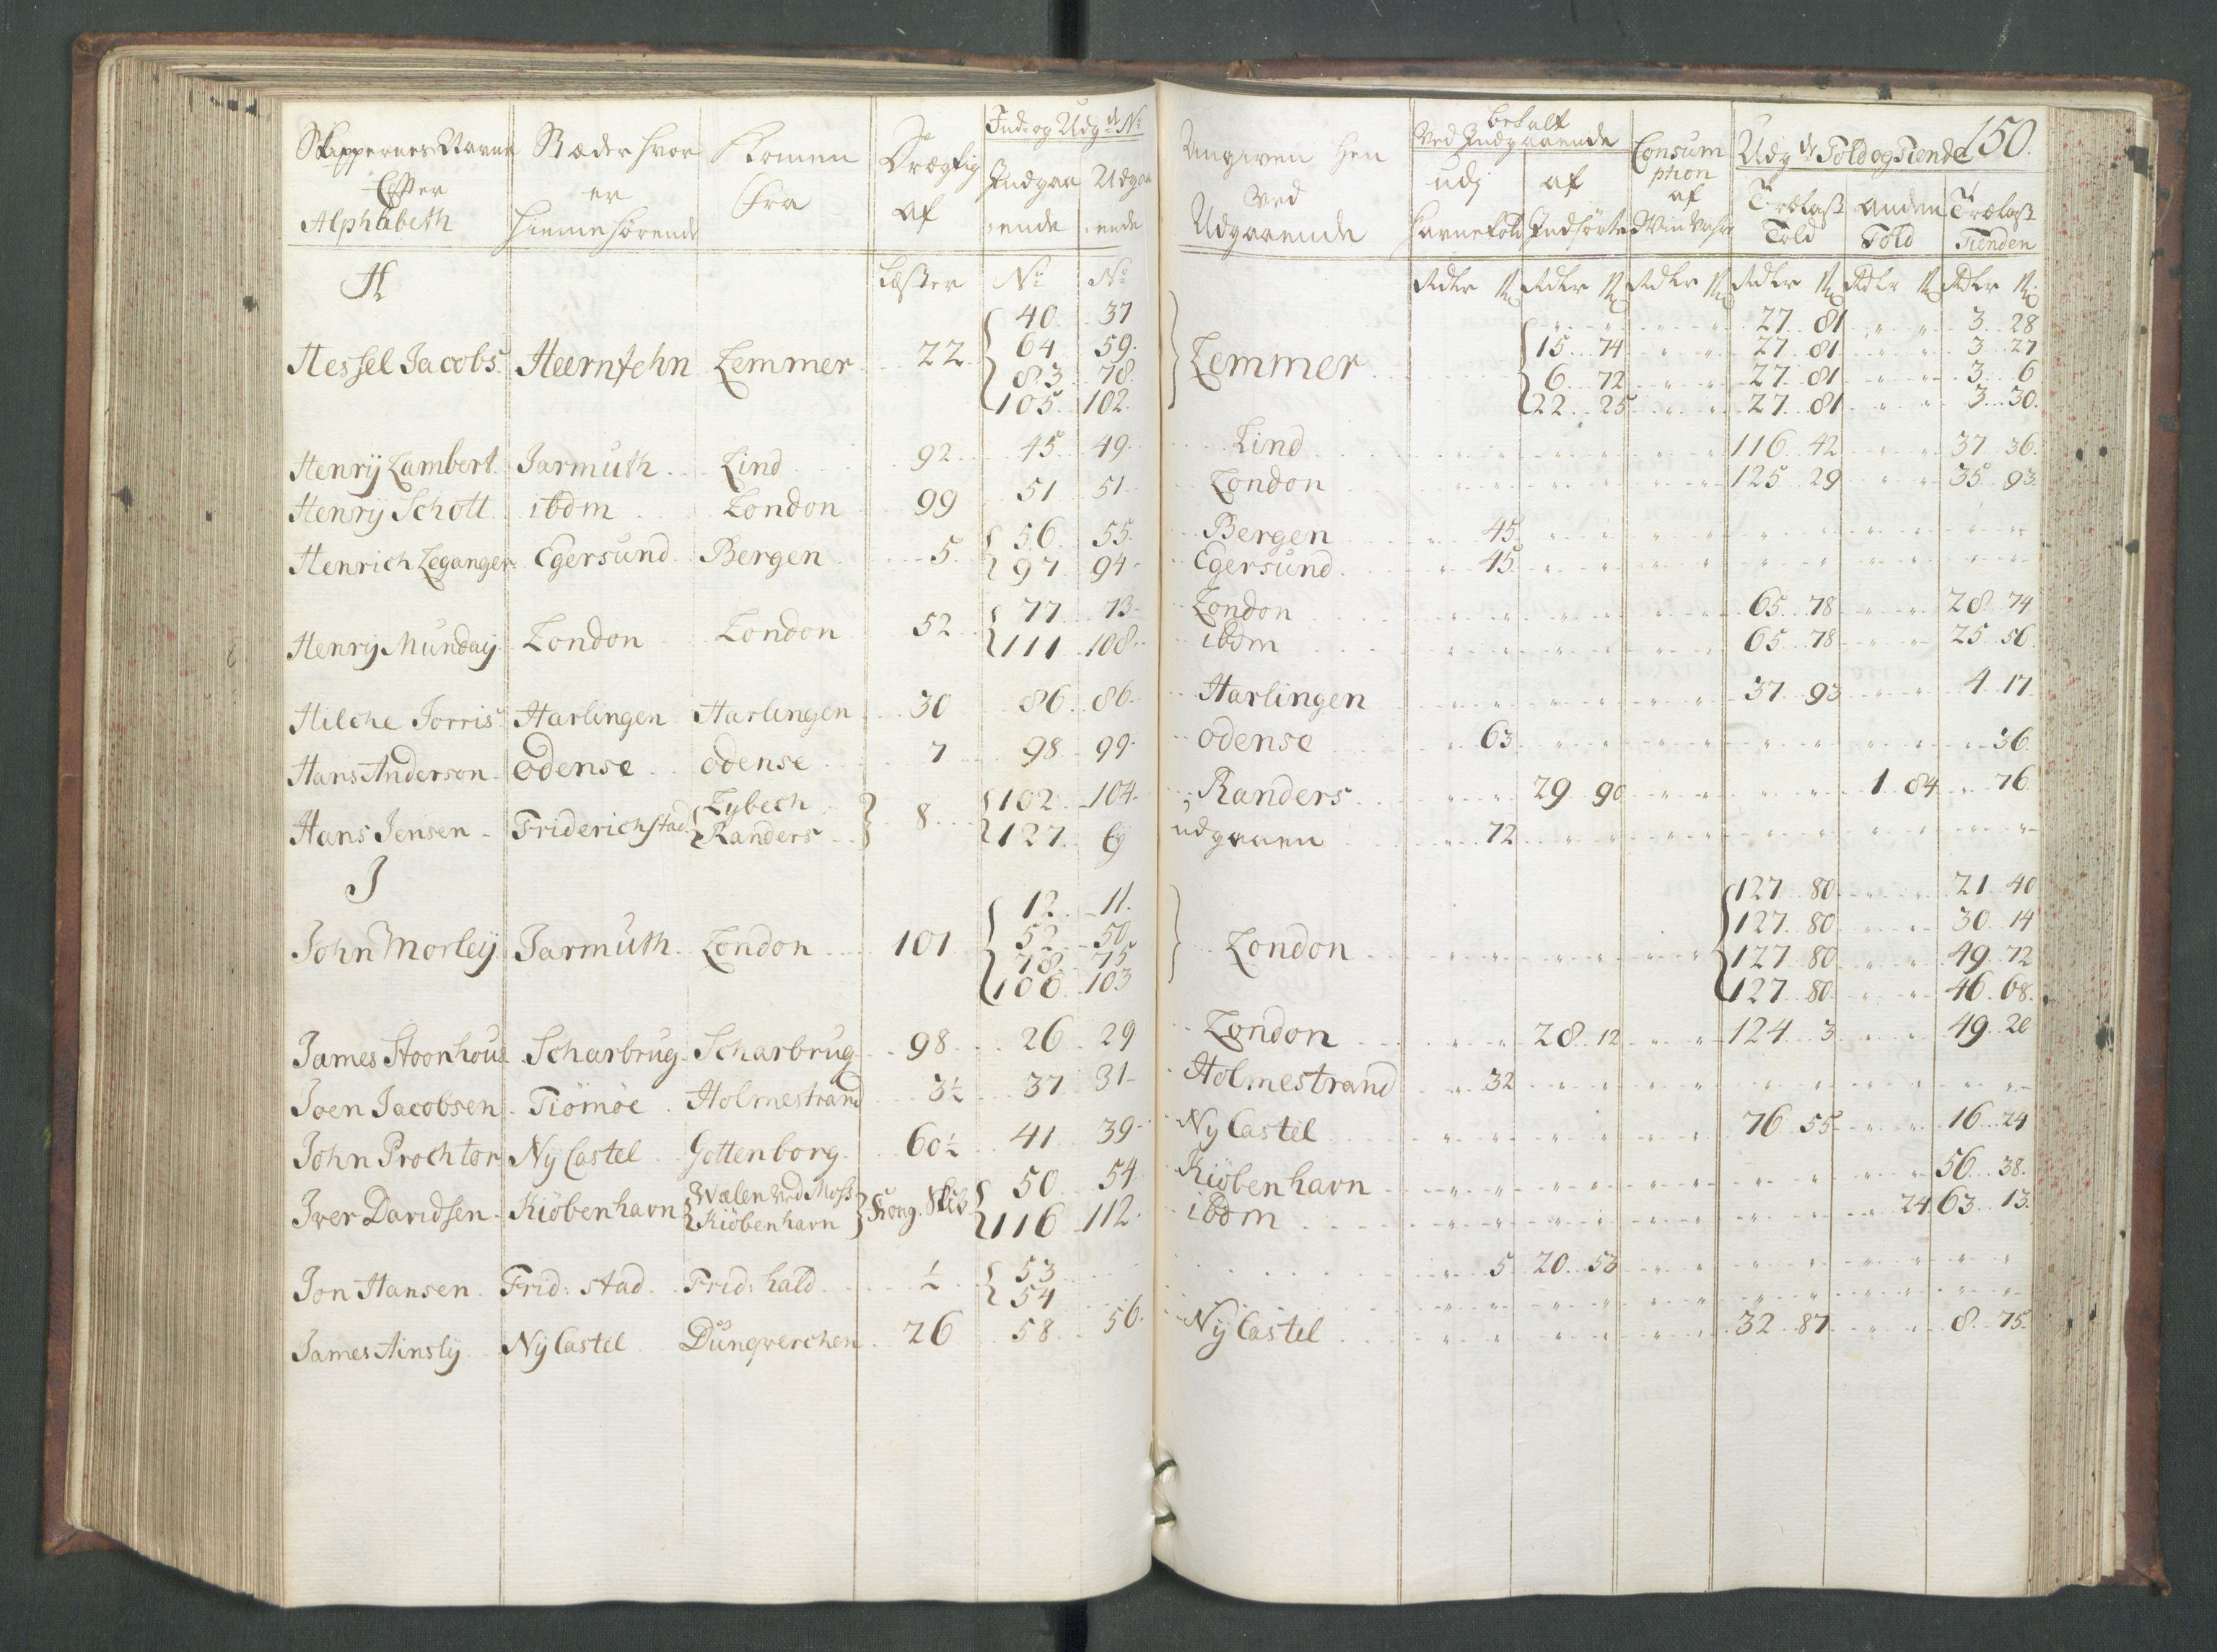 Skippernes Navne Efter Alphabeth | Stæder hvor er hiemehörende | Kommen fra | Drægtig af | Ind- og Udg:de No | Indgaaende | Udgaaende
H | Læster | No | No
Hessel Jacobs | Heernfehn | Lemmer | 22 | 40 | 37
64 | 59
83 | 78
105 | 102
Henrÿ Lambert | Jarmuth | Lind | 92 | 45 | 49
Henrÿ Schott | ibdm | London | 99 | 51 | 51
Henrich Leganger | Egersund | Bergen | 5 | 56 | 55
97 | 94
Henrÿ Munday | London | London | 52 | 77 | 73
111 | 108
Hilche Jorris | Harlingen | Harlingen | 30 | 86 | 86
Hans Anderson | Odense | Odense | 7 | 98 | 99
Hans Jensen | Friderichstad | Lybech | 8 | 102 | 104
Randers | 127 | Ej
J
John Morleÿ | Jarmuth | London | 101 | 12 | 11
52 | 50
78 | 75
106 | 103
James Stoonhous | Scharbrug | Scharbrug | 98 | 26 | 29
Joen Jacobsen | Tiömöe | Holmestrand | 3½ | 37 | 31
John Prochtor | Nÿ Castel | Gottenborg | 60½ | 41 | 39
Iver Davidsen | Kiöbenhavn | Wælen ved Moss | Kong. Skib | 50 | 54
Kiöbenhavn | 116 | 112
Jon Hansen | Frid: stad | Frid: hald | ½ | 53
54
James Ainsly | Nÿ Castel | Dunqverchen | 26 | 58 | 56
150.
Angiven hen ved Udgaaende | betalt ved Indgaaende | udj Havnetold | af Indförte | Consumption af Win Vahre | Udg:de Told og Tiende | Trælast Told | anden Told | Trælast Tienden
Rdlr ß | Rdlr ß | Rdlr ß | Rdlr ß | Rdlr ß | Rdlr ß
Lemmer | 27 81 | 3 28
15 74 | 27 81 | 3 27
6 72 | 27 81 | 3 6
22 25 | 27 81 | 3 30
Lind | 116 42 | 37 36
London | 125 29 | 35 93
Bergen | 45
Egersund | 45
London | 65 78 | 28 74
ibdm | 65 78 | 25 56
Harlingen | 37 93 | 4 17
Odense | 63 | 36
Randers | 29 90 | 1 84 | 76
udgaaen | 72
127 80 | 21 40
127 80 | 30 14
London | 127 80 | 49 72
127 80 | 46 68
London | 28 12 | 124 3 | 49 20
Holmestrand | 32
Nÿ Castel | 76 55 | 16 24
Kiöbenhavn | 56 38
ibdm | 24 | 63 13
5 | 20 53
Nÿ Castel | 32 87 | 8 75